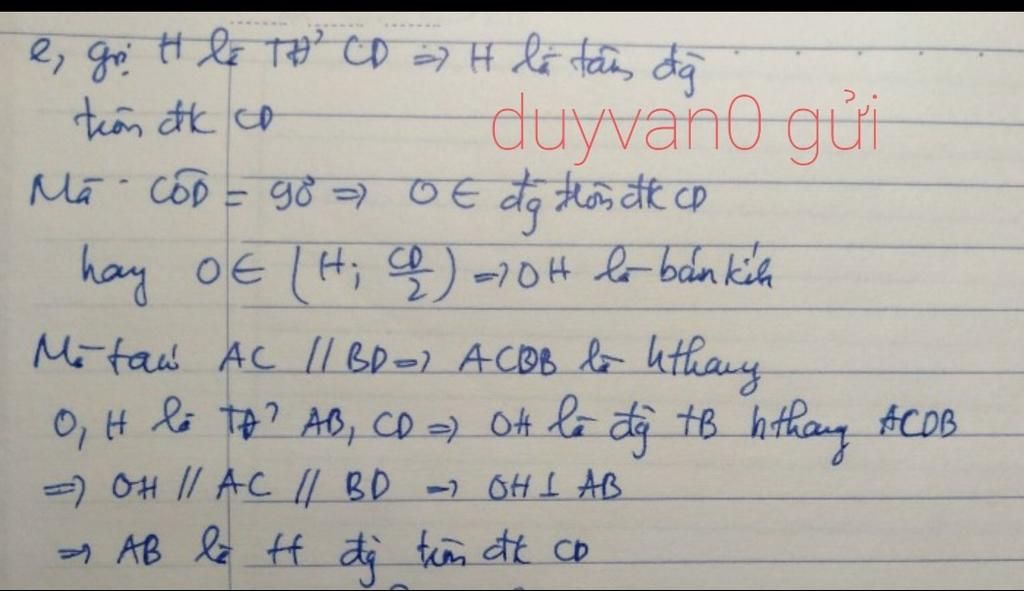 e, gọi H là TĐ² CD => H là tâm đg
duyvan0 gửi
tròn đk CD
Mà COD = 90° => O ∈ đg tròn đk CD
hay O ∈ (H; CD/2) => OH là bán kính
Mà ta có AC // BD => ACDB là hthang
O, H là TĐ² AB, CD => OH là đg TB hthang ACDB
=> OH // AC // BD => OH ⊥ AB
=> AB là tt đg tròn đk CD